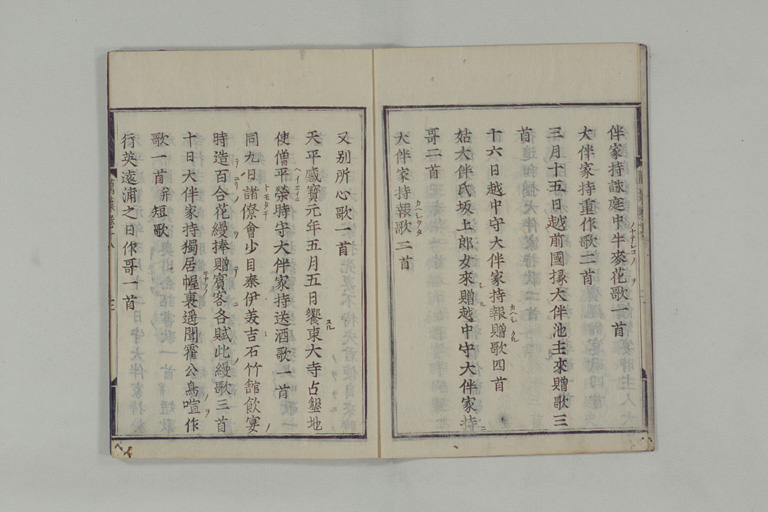 伴家持詠庭中牛麥花歌一首
大伴家持重作歌二首
三月十五日越前國掾大伴池主來贈歌三
首
十六日越中守大伴家持報贈歌四首
姑大伴氏坂上郎女來贈越中守大伴家持
哥二首
大伴家持報歌二首
又別所心歌一首
天平感寶元年五月五日饗東大寺占墾地
使僧平榮時守大伴家持送酒歌一首
同九日諸僚會少目秦伊美吉石竹舘飲宴
時造百合花縵捧贈賓客各賦此縵歌三首
十日大伴家持獨居幄裏遥聞霍公鳥喧作
歌一首并短歌
行英遠浦之日作哥一首